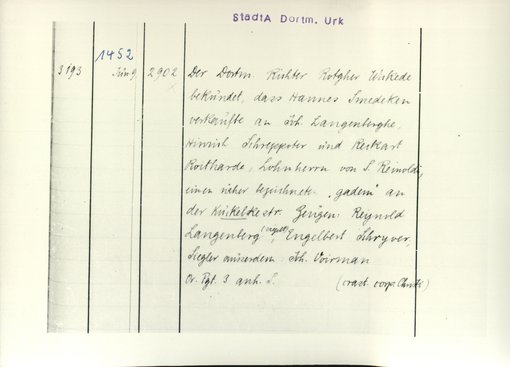 StadtA Dortm. Urk
1452
3193 Jun 9, 2902 Der Dortm. Richter Rotgher Wickede
bekundet, dass Hannes Smedeken
verkaufte an Joh. Langenberghe,
Hinrich Schreppeter und
Lohnherrn von S. Reinoldi,
einen näher bezeichneten "gadem" an
der Kuckelkestr. Zeugen: Reynold
Langenberg, Engelbert Schryver,
Siegler ausserdem Joh. Voirman
Or. Pgt. 3 anh. S.